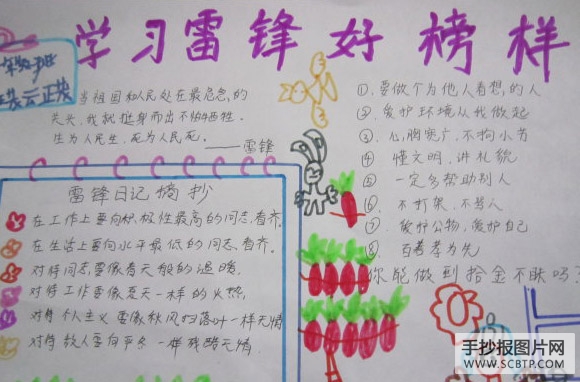 学习雷锋好榜样
年级 班
裴云正
当祖国和人民处在最危急的
关头,我就挺身而出不怕牺牲。
生为人民生,死为人民死。
——雷锋
雷锋日记摘抄
在工作上要向积极性最高的同志看齐。
在生活上要向水平最低的同志看齐。
对待同志要像春天般的温暖
对待工作要像夏天一样的火热
对待个人主义要像秋风扫落叶一样无情
对待敌人要向严冬一样残酷无情
①、要做个为他人着想的人
②、爱护环境从我做起
③、心胸宽广,不拘小节
④、懂文明,讲礼貌
⑤、一定多帮助别人
⑥、不打架,不骂人
⑦、爱护公物,爱护自己
⑧、百善孝为先
你能做到拾金不昧吗?
手抄报图片网
WWW.SCBTP.COM